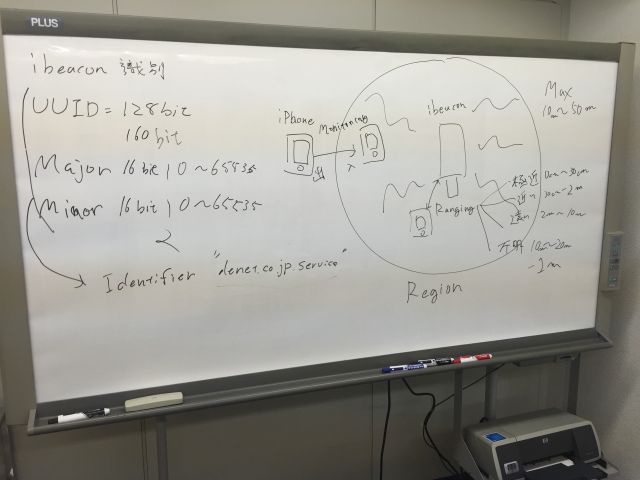 PLUS
ibeacon 識別
UUID = 128bit
160bit
Major 16bit | 0~65535
Minor 16bit | 0~65535
Identifier "denet.co.jp.service"
iPhone
Monitoring
出
入
ibeacon
Ranging
Max
10m~50m
極近 0cm~30cm
近い 30cm~2m
遠い 2m~10m
不明 10m~20m
-1m
Region
hp